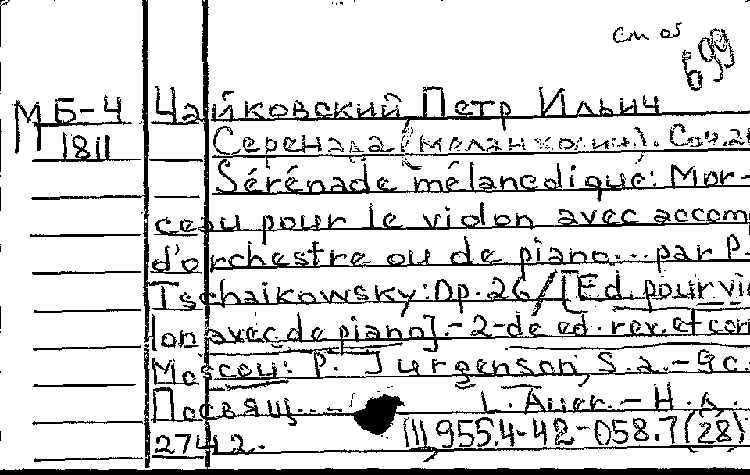 см об
699
М Б-4 Чайковский Петр Ильич
1811 Серенада (меланхолич). Соч.26
Sérénade mélancolique: Mor-
ceau pour le violon avec accomp
d'orchestre ou de piano... par P.
Tschaikowsky: Op. 26/[Ed. pour vio
lon avec de piano].-2-de ed. rev. et corr
Moscou: P. Jurgenson, S.a.-9c.
Посвящ... L. Auer.-Н.д.
27412. 955.4-42-058.7(28)